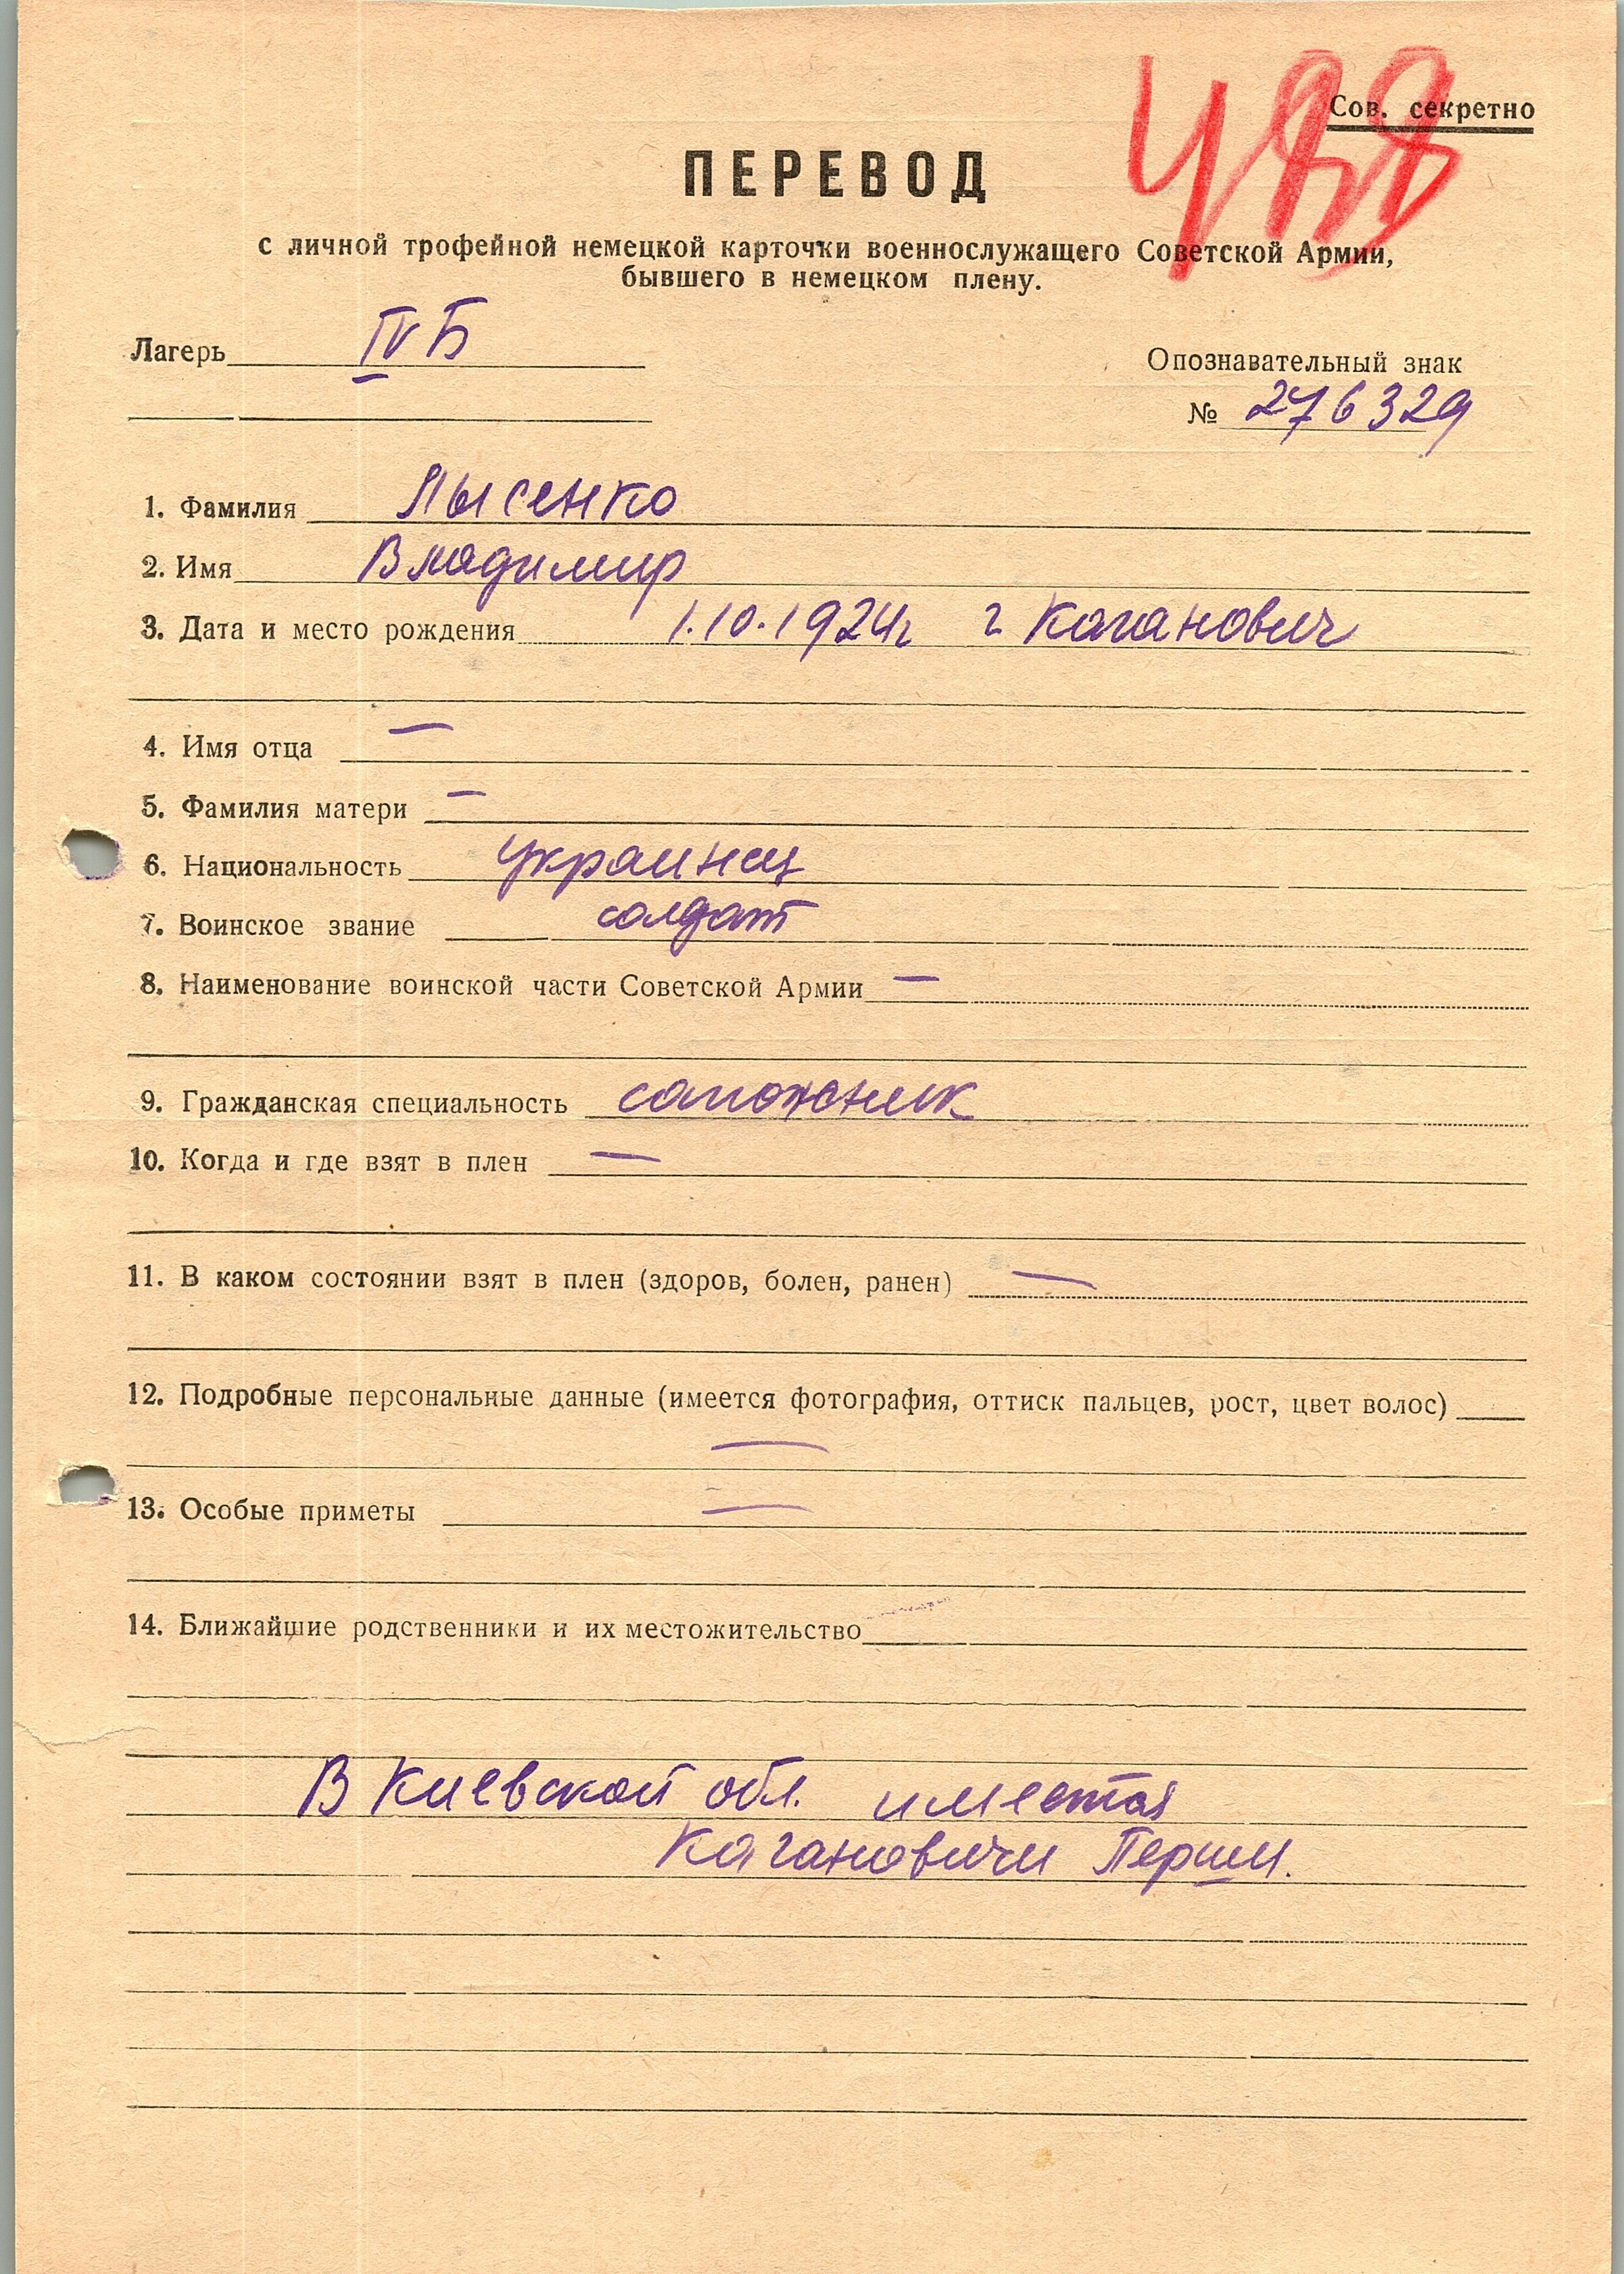 Сов. секретно
ПЕРЕВОД
с личной трофейной немецкой карточки военнослужащего Советской Армии,
бывшего в немецком плену.
Лагерь IV Б
Опознавательный знак
№ 276329
1. Фамилия Лысенко
2. Имя Владимир
3. Дата и место рождения 1.10.1924г г. Каганович
4. Имя отца —
5. Фамилия матери —
6. Национальность украинец
7. Воинское звание солдат
8. Наименование воинской части Советской Армии —
9. Гражданская специальность сапожник
10. Когда и где взят в плен —
11. В каком состоянии взят в плен (здоров, болен, ранен) —
12. Подробные персональные данные (имеется фотография, оттиск пальцев, рост, цвет волос)
—
13. Особые приметы —
14. Ближайшие родственники и их местожительство
В Киевской обл. имеется
Кагановичи Перши.